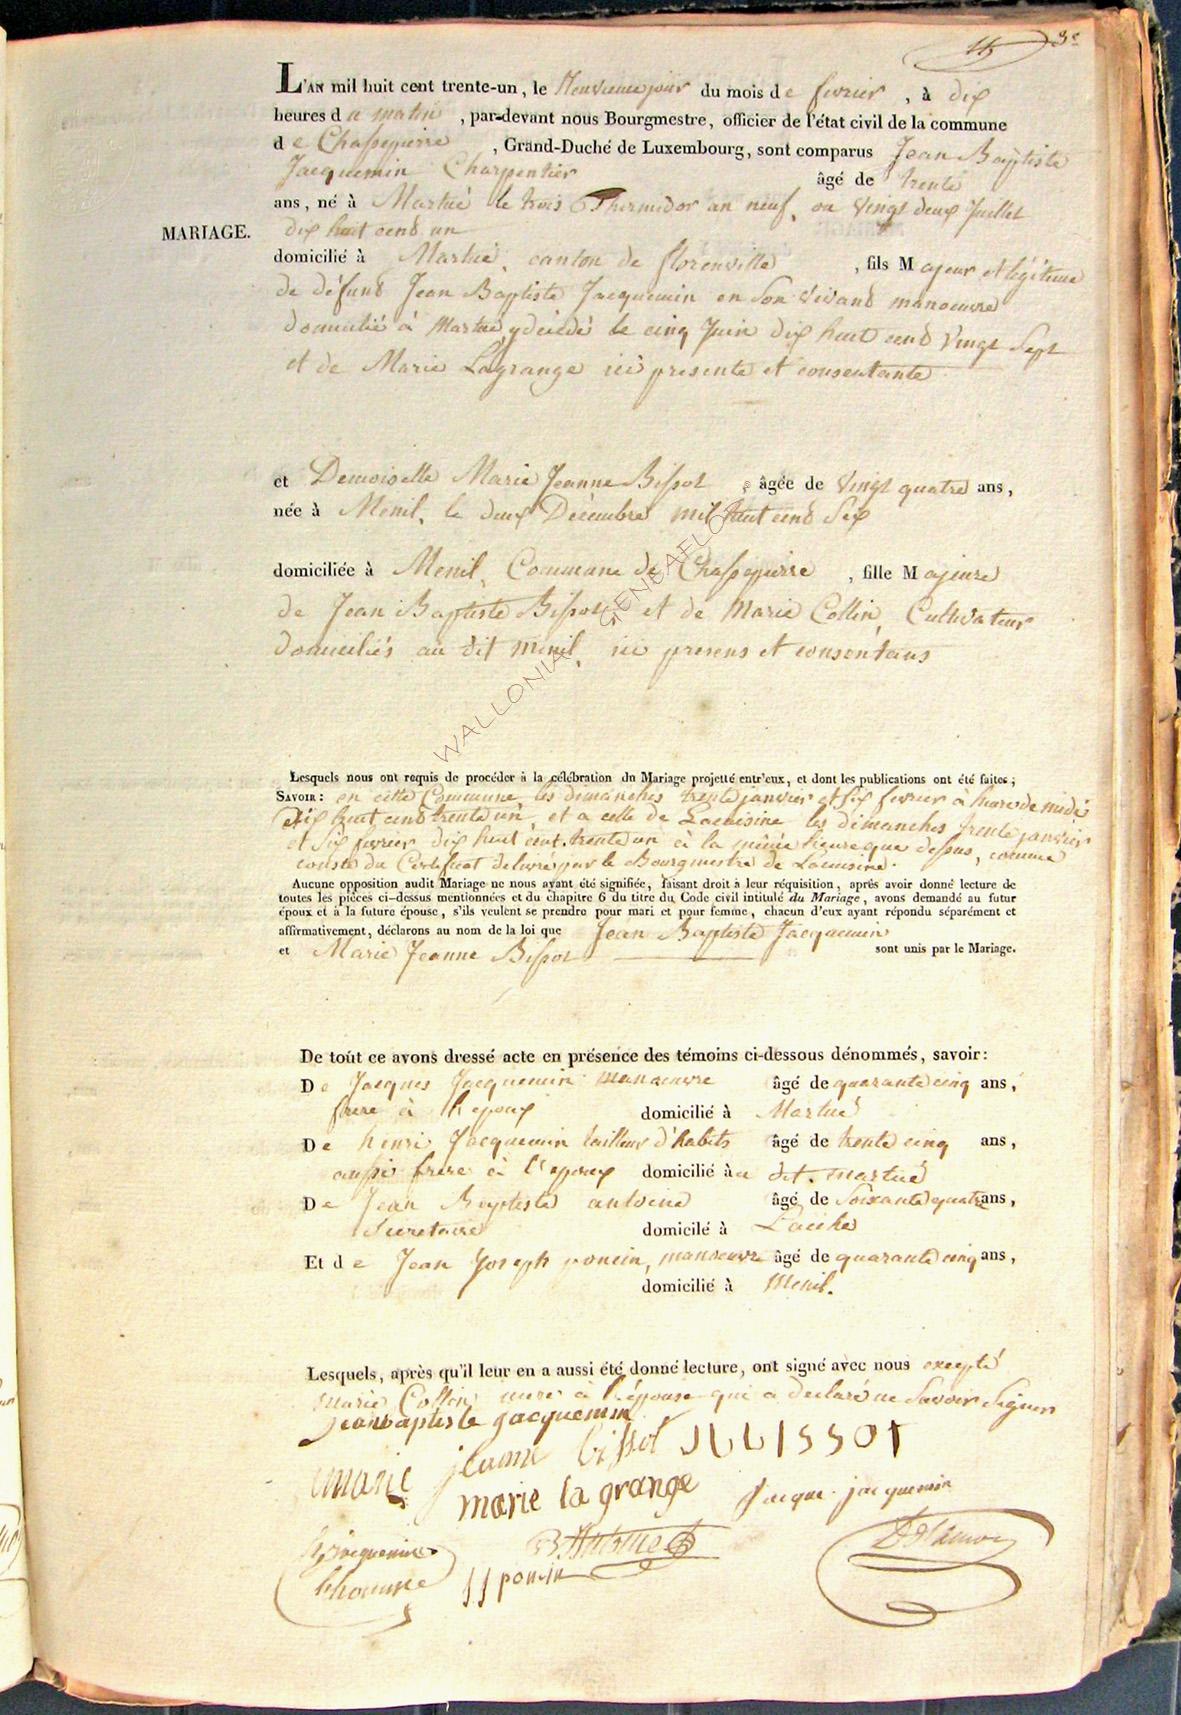 3e
L'AN mil huit cent trente-un, le Neuvieme jour du mois de fevrier, à dix
heures du matin, par-devant nous Bourgmestre, officier de l'état civil de la commune
de Chassepierre, Grand-Duché de Luxembourg, sont comparus Jean Baptiste
Jacquemin Charpentier âgé de trente
ans, né à Martué le trois Thermidor an neuf, ou vingt deux Juillet
MARIAGE. dix huit cend un
domicilié à Martué, canton de florenville, fils Majeur et légitime
de défund Jean Baptiste Jacquemin en Son vivand manoeuvre
domicilié à Martué y décédé le cinq Juin dix huit cend vingt Sept
et de Marie Lagrange ici présente et consentante
et Demoiselle Marie Jeanne Bissot, âgée de vingt quatre ans,
née à Menil, le deux Décembre mil huit cend Six
domiciliée à Menil, Commune de Chassepierre, fille Majeure
de Jean Baptiste Bissot et de Marie Collin, Cultivateur
domiciliés au dit menil, ici presens et consentans
WALLONIA GENEAFLOR
Lesquels nous ont requis de procéder à la célébration du Mariage projetté entr'eux, et dont les publications ont été faites;
SAVOIR: en cette Commune, les dimanches trente janvier et six fevrier à heure de midi
dix huit cend trente un, et a celle de Lacuisine les dimanches trente janvier
et six fevrier dix huit cent trente un à la même heure que dessus, comme
conste du Certificat delivré par le Bourgmestre de Lacuisine.
Aucune opposition audit Mariage ne nous ayant été signifiée, faisant droit à leur réquisition, après avoir donné lecture de
toutes les pièces ci-dessus mentionnées et du chapitre 6 du titre du Code civil intitulé du Mariage, avons demandé au futur
époux et à la future épouse, s'ils veulent se prendre pour mari et pour femme, chacun d'eux ayant répondu séparément et
affirmativement, déclarons au nom de la loi que Jean Baptiste Jacquemin
et Marie Jeanne Bissot sont unis par le Mariage.
De tout ce avons dressé acte en présence des témoins ci-dessous dénommés, savoir:
De Jacques Jacquemin manoeuvre âgé de quarante cinq ans,
frere à l'epoux domicilié à Martué
De henri Jacquemin tailleur d'habits âgé de trente cinq ans,
aussi frere à l'epoux domicilié àu dit martué
De Jean Baptiste antoine âgé de Soixante quatre ans,
Secretaire domicilé à Laiche
Et de Jean Joseph poncin, manoeuvre âgé de quarante cinq ans,
domicilié à Menil.
Lesquels, après qu'il leur en a aussi été donné lecture, ont signé avec nous excepté
marie Collin mere à l'épouse qui a déclaré ne Savoir Signer
jeanbaptiste jacquemin
marie jeanne bissot JBBISSOT
marie la grange jacque jacquemin
h jacquemin BAntoine
JJ poncin